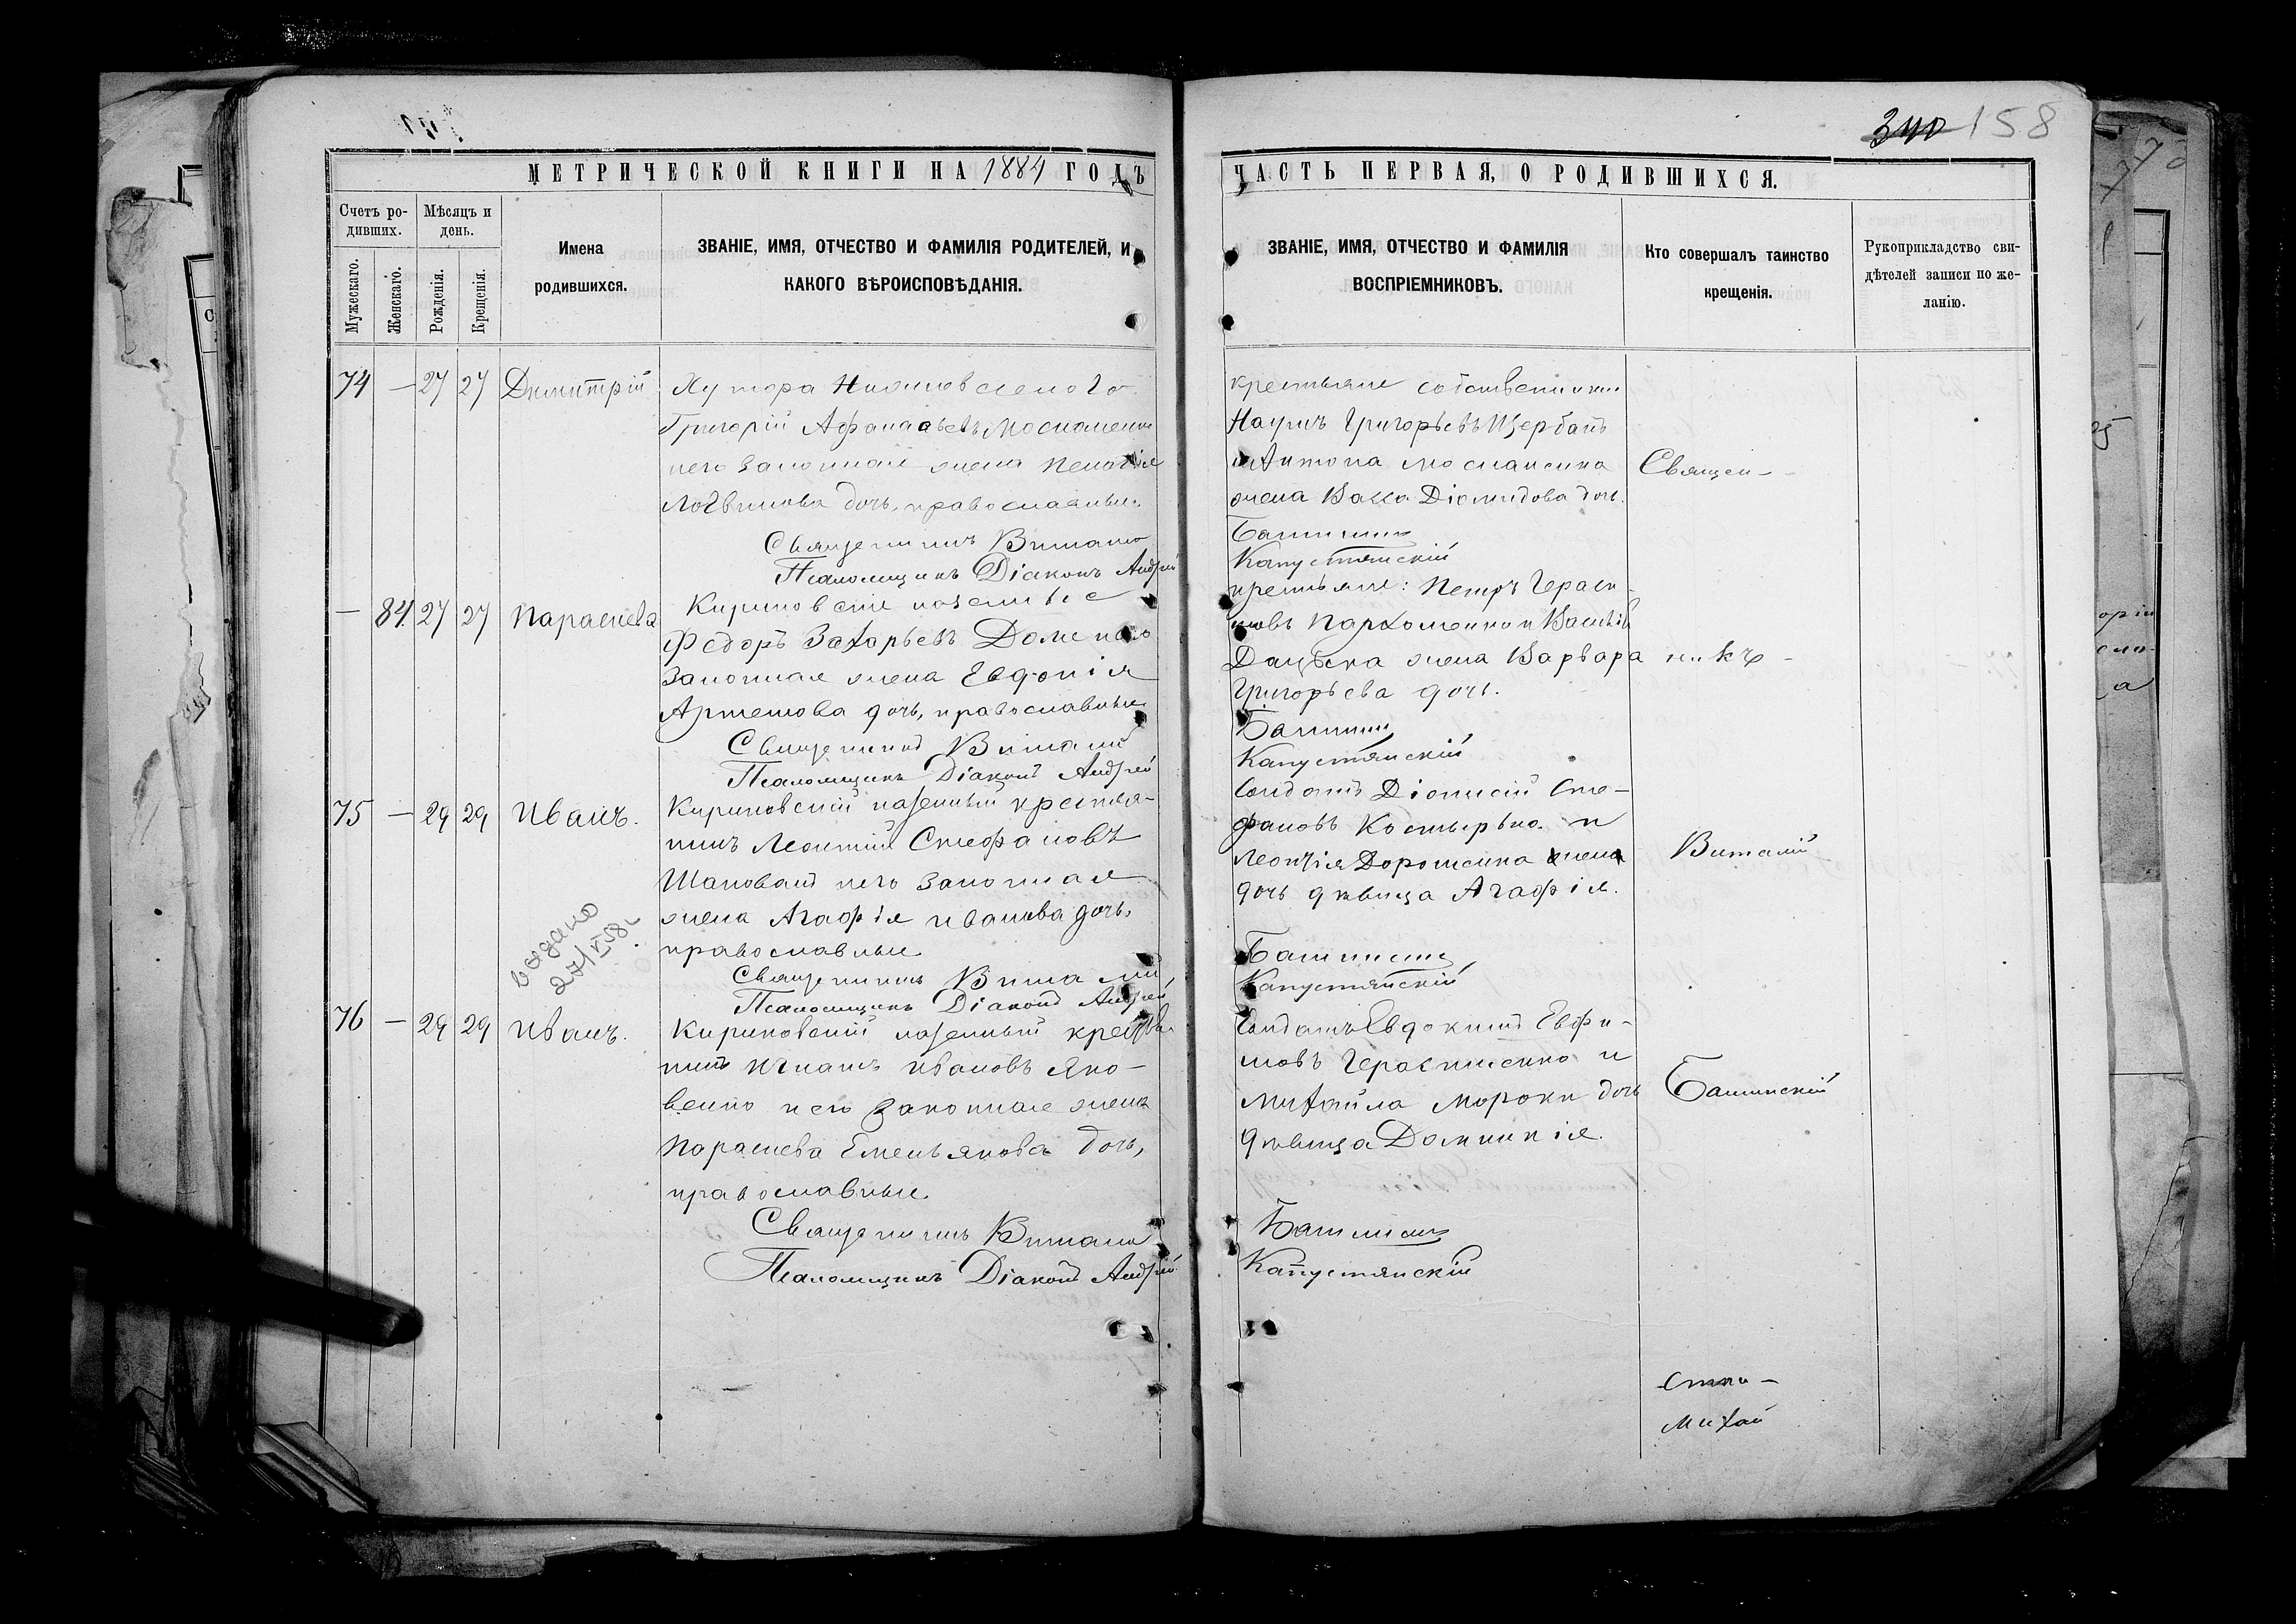 340 158
МЕТРИЧЕСКОЙ КНИГИ НА 1884 ГОДЪ
ЧАСТЬ ПЕРВАЯ, О РОДИВШИХСЯ.
Счетъ ро-
дивших.
Мужескаго.
Женскаго.
Мѣсяцъ и
день.
Рожденія.
Крещенія.
Имена
родившихся.
ЗВАНІЕ, ИМЯ, ОТЧЕСТВО И ФАМИЛІЯ РОДИТЕЛЕЙ, И
КАКОГО ВѢРОИСПОВѢДАНІЯ.
ЗВАНІЕ, ИМЯ, ОТЧЕСТВО И ФАМИЛІЯ
ВОСПРІЕМНИКОВЪ.
Кто совершалъ таинство
крещенія.
Рукоприкладство сви-
дѣтелей записи по же-
ланію.
74 — 27 27 Димитрій
Хутора
Григорій Афанасьевъ
и его законная жена
Логвинова дочь, православные.
Священникъ Виталій
Псаломщикъ Діаконъ Андрей
крестьяне собственники
Наумъ Григорьевъ Щербань
и Антона Москаленка
жена Васса Діомидова дочь.
Башинскій
Капустянскій
— 84 27 27 Параскева
Кириковскіе казенные
Федоръ Захарьевъ
законная жена Евдокія
Артемова дочь, православные
Священникъ Виталій
Псаломщикъ Діаконъ Андрей
крестьяне: Петръ Гераси-
мовъ Пархоменко и Василія
Дацька жена Варвара
Григорьева дочь.
Башинскій
Капустянскій
75 — 29 29 Иванъ.
Кириковскій казенный крестья-
нинъ Леонтій Стефановъ
Шаповалъ и его законная
жена Агафія Иванова дочь,
православные
Священникъ Виталій
Псаломщикъ Діаконъ Андрей
Солдатъ Діонисій Сте-
фановъ Костырько и
Леонтія Дорошенка жена
дочь дѣвица Агафія.
Башинскій
Капустянскій
выдано
27/V 58 г.
76 — 29 29 Иванъ.
Кириковскій казенный крестья-
нинъ Игнатъ Ивановъ Яко-
венко и его законная жена
Параскева Емельянова дочь,
православные.
Священникъ Виталій
Псаломщикъ Діаконъ Андрей
Солдатъ Евдокимъ Евфи-
мовъ Герасименко и
Михайла Мороки дочь
дѣвица Домникія.
Башинскій
Капустянскій
Священ-
никъ
Виталій
Башинскій
Михай